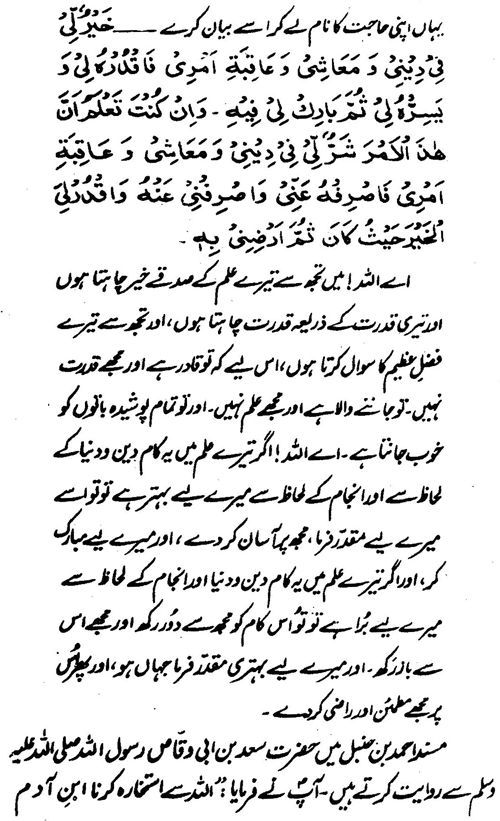 یہاں اپنی حاجت کا نام لے کر اسے بیان کرے ـــــــ خَيْرٌ لِّيْ
فِيْ دِيْنِيْ وَ مَعَاشِيْ وَ عَاقِبَةِ اَمْرِيْ فَاقْدُرْهُ لِيْ وَ
يَسِّرْهُ لِيْ ثُمَّ بَارِكْ لِيْ فِيْهِ ۔ وَاِنْ كُنْتَ تَعْلَمُ اَنَّ
هٰذَا الْاَمْرَ شَرٌّ لِّيْ فِيْ دِيْنِيْ وَ مَعَاشِيْ وَ عَاقِبَةِ
اَمْرِيْ فَاصْرِفْهُ عَنِّيْ وَاصْرِفْنِيْ عَنْهُ وَاقْدُرْ لِيَ
الْخَيْرَ حَيْثُ كَانَ ثُمَّ اَرْضِنِيْ بِهٖ ۔
اے اللہ! میں تجھ سے تیرے علم کے صدقے خیر چاہتا ہوں
اور تیری قدرت کے ذریعہ قدرت چاہتا ہوں، اور تجھ سے تیرے
فضلِ عظیم کا سوال کرتا ہوں، اس لیے کہ تو قادر ہے اور مجھے قدرت
نہیں۔ تو جاننے والا ہے اور مجھے علم نہیں۔ اور تو تمام پوشیدہ باتوں کو
خوب جانتا ہے۔ اے اللہ! اگر تیرے علم میں یہ کام دین و دنیا کے
لحاظ سے اور انجام کے لحاظ سے میرے لیے بہتر ہے تو تو اسے
میرے لیے مقدّر فرما، مجھ پر آسان کر دے، اور میرے لیے مبارک
کر، اور اگر تیرے علم میں یہ کام دین و دنیا اور انجام کے لحاظ سے
میرے لیے بُرا ہے تو تو اُس کام کو مجھ سے دُور رکھ اور مجھے اس
سے باز رکھ۔ اور میرے لیے بہتری مقدّر فرما جہاں ہو، اور پھر اُس
پر مجھے مطمئن اور راضی کر دے ۔
مسند احمد بن حنبل میں حضرت سعد بن ابی وقاص رسول اللہ صلی اللہ علیہ
وسلم سے روایت کرتے ہیں۔ آپؐ نے فرمایا: "اللہ سے استخارہ کرنا ابنِ آدم